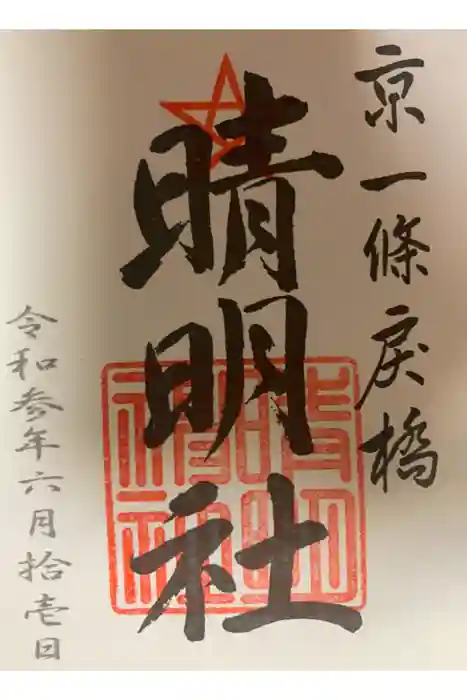 京一條戻橋
晴明社
晴明神社
令和参年六月拾壱日